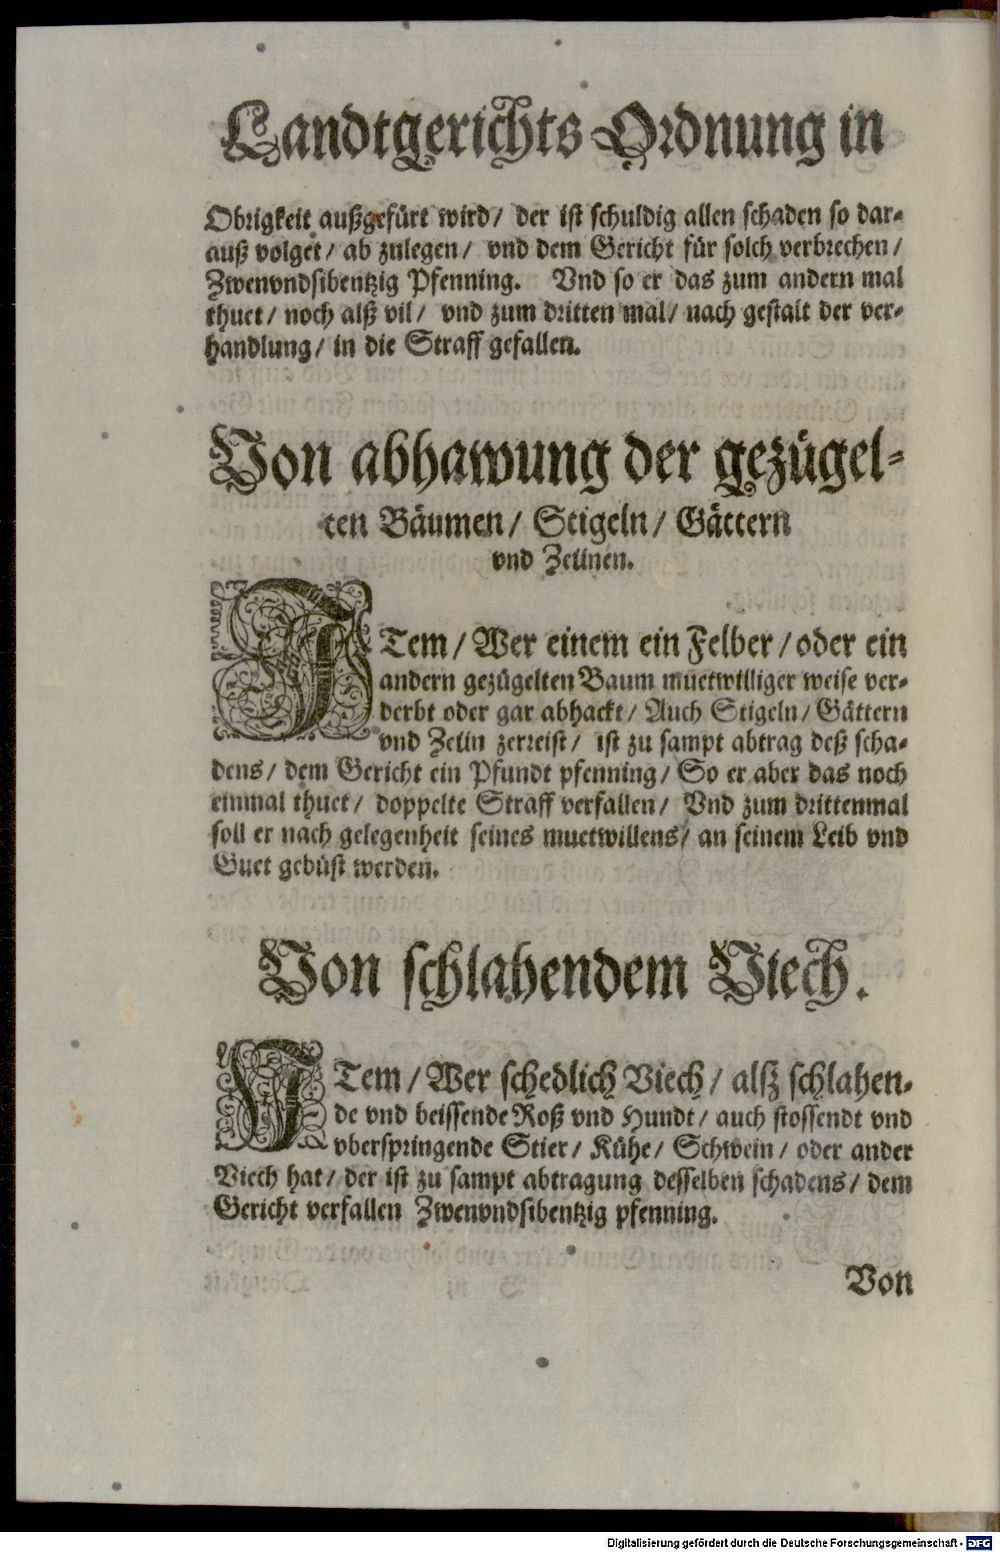 Landtgerichts Ordnung in
Obrigkeit außgefürt wird/ der ist schuldig allen schaden so dar-
auß volget/ ab zulegen/ vnd dem Gericht für solch verbrechen/
Zwenvndsibentzig Pfenning. Vnd so er das zum andern mal
thuet/ noch alß vil/ vnd zum dritten mal/ nach gestalt der ver-
handlung/ in die Straff gefallen.
Von abhawung der gezügel-
ten Bäumen/ Stigeln/ Gättern
vnd Zeünen.
ITem/ Wer einem ein Felber/ oder ein
andern gezügelten Baum muetwilliger weise ver-
derbt oder gar abhackt/ Auch Stigeln/ Gättern
vnd Zeün zerreist/ ist zu sampt abtrag deß scha-
dens/ dem Gericht ein Pfundt pfenning/ So er aber das noch
einmal thuet/ doppelte Straff verfallen/ Vnd zum drittenmal
soll er nach gelegenheit seines muetwillens/ an seinem Leib vnd
Guet gebüst werden.
Von schlahendem Viech.
ITem/ Wer schedlich Viech/ alß schlahen-
de vnd beissende Roß vnd Hundt/ auch stossendt vnd
vberspringende Stier/ Kühe/ Schwein/ oder ander
Viech hat/ der ist zu sampt abtragung desselben schadens/ dem
Gericht verfallen Zwenvndsibentzig pfenning.
Von
Digitalisierung gefördert durch die Deutsche Forschungsgemeinschaft - DFG